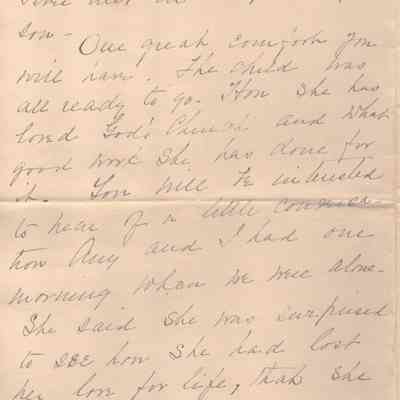 sow -
One great comfort you
will have. The child was
all ready to go. How she has
loved God's Church and what
good work she has done for
it. You will be interested
to hear of a little conver
tion Amy and I had one
morning when we were alone.
She said she was surprised
to see how she had lost
her love for life, that she